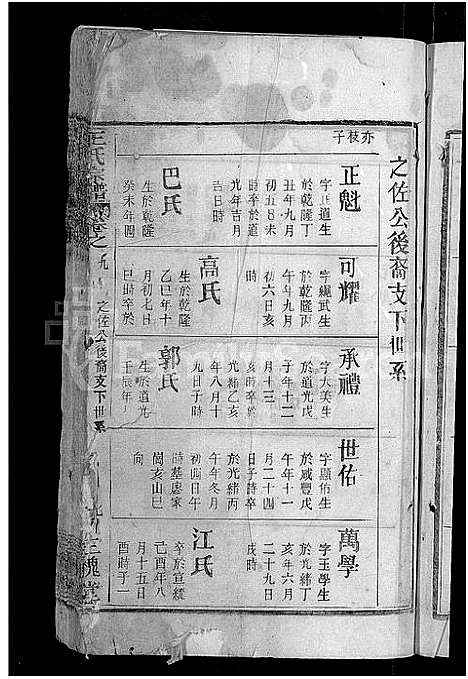 之佐公後裔支下世系
亦枝子
正魁
字正道生
於乾隆丁
丑年九月
初五日未
時卒於道
光年吉月
吉日時
巴氏
生於乾隆
癸未年
可耀
字繩武生
於乾隆丙
午年九月
初六日亥
時
高氏
生於乾隆
乙巳年十
月初七日
巳時卒於
承禮
字大美生
於道光戊
子年十二
月十三
亥時卒於
光緒乙亥
年八月十
九日子時
郭氏
生於道光
壬辰年
世佑
字顯佑生
於咸豐戊
午年十一
月二十四
日子時卒
於光緒丙
午年冬月
初四日午
時墓廖家
崗亥山巳
向
萬學
字玉學生
於光緒丁
亥年六月
二十九日
戌時
江氏
辛於宣統
己酉年八
月十五日
酉時于一
王氏宗譜
之佐公後裔支下世系
三槐堂